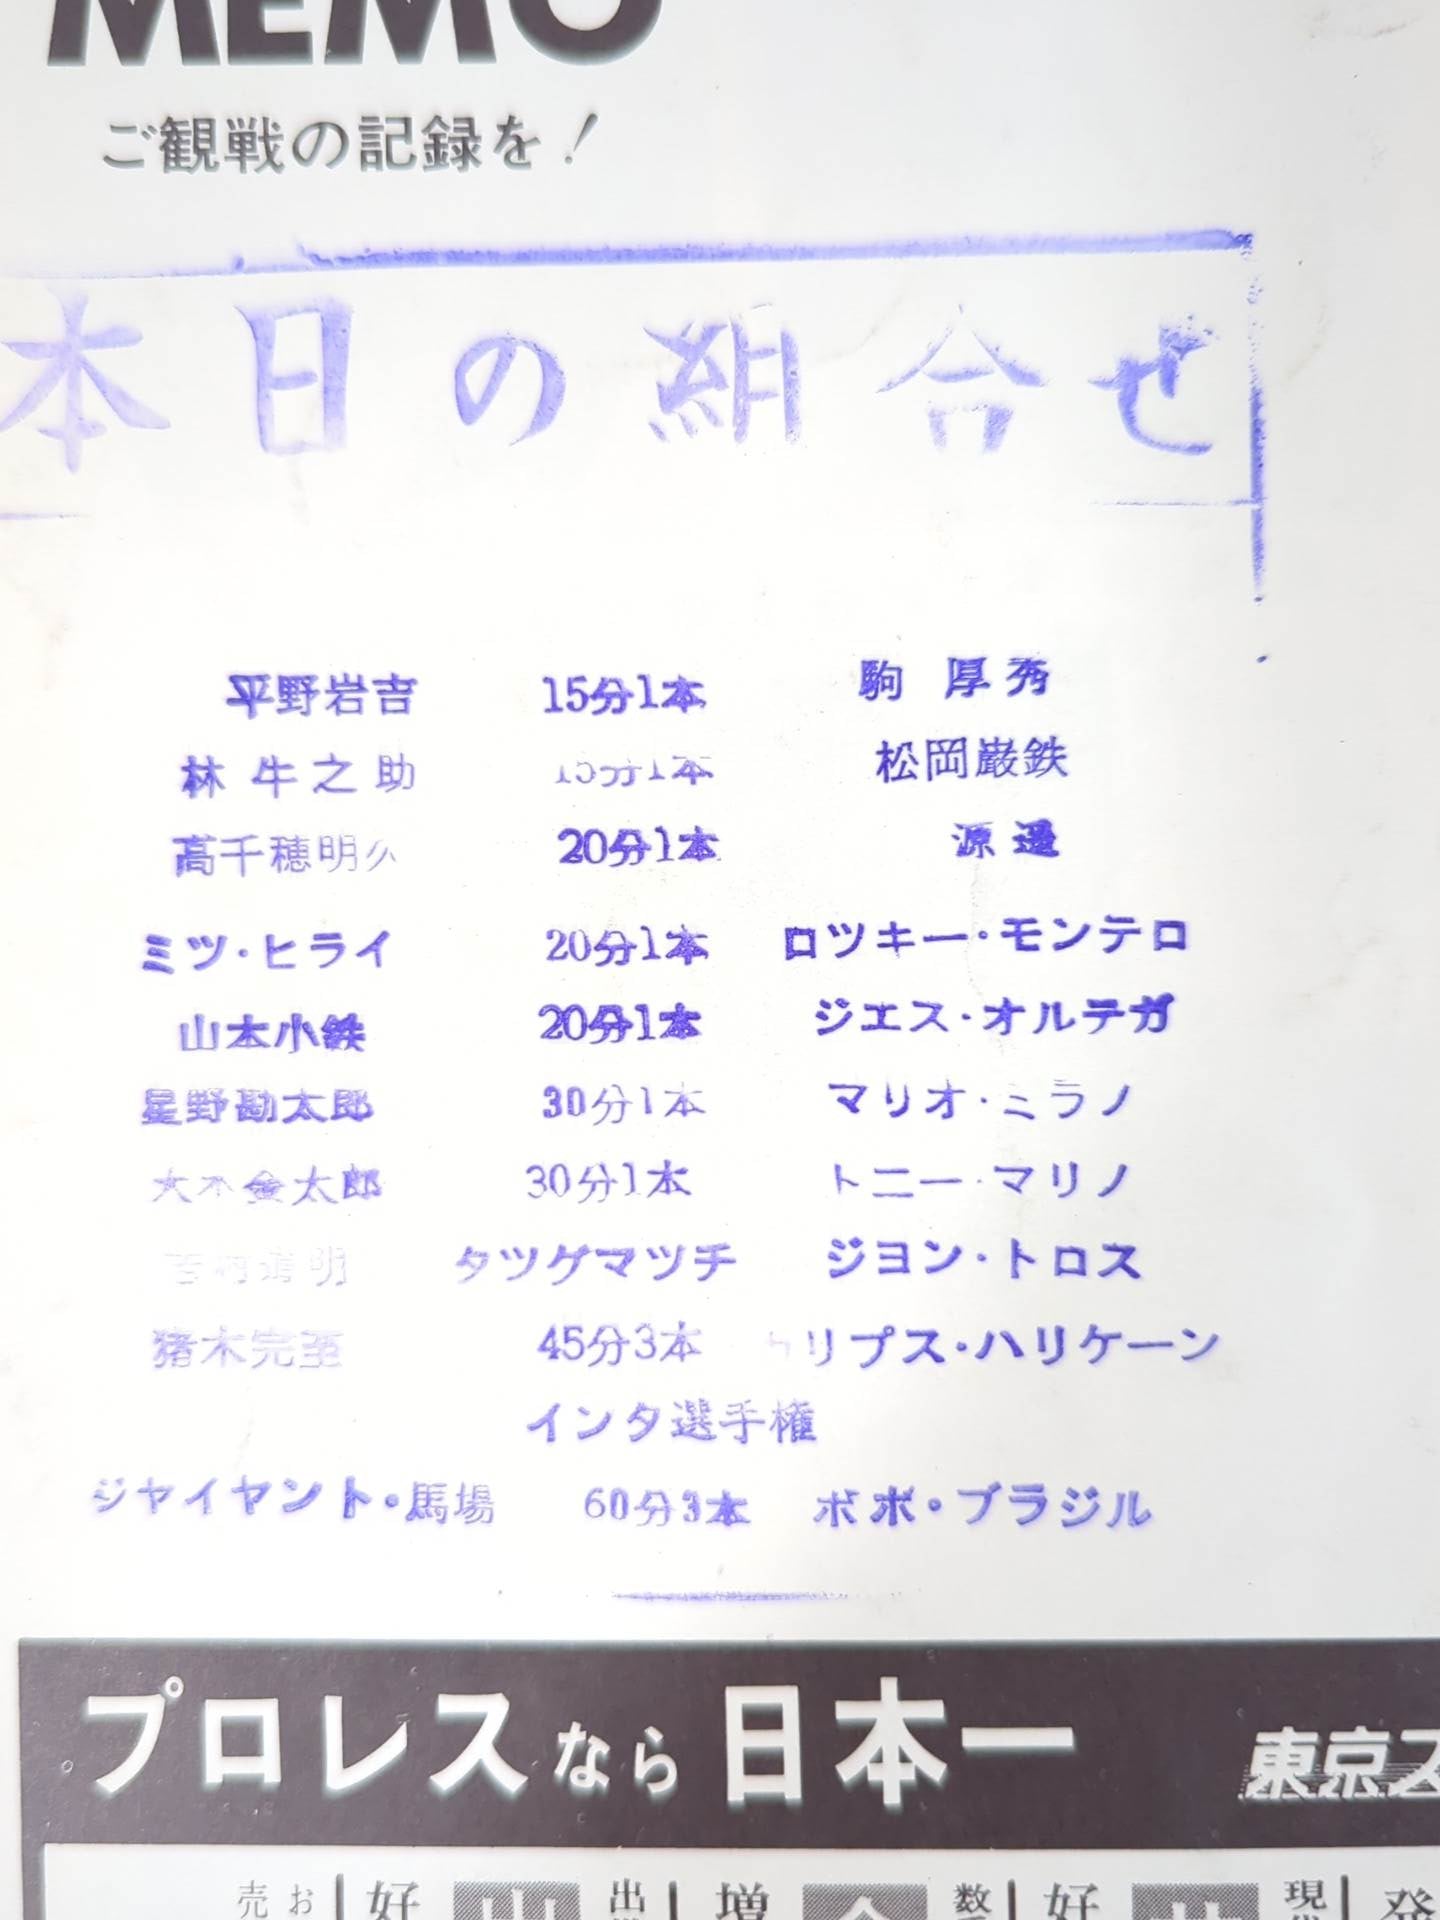 MEMO
ご観戦の記録を！
本日の組合せ
平野岩吉 15分1本 駒 厚秀
林 牛之助 15分1本 松岡巌鉄
高千穂明久 20分1本 源 遥
ミツ・ヒライ 20分1本 ロツキー・モンテロ
山本小鉄 20分1本 ジエス・オルテガ
星野勘太郎 30分1本 マリオ・ミラノ
大木金太郎 30分1本 トニー・マリノ
吉村道明 タツグマツチ ジヨン・トロス
猪木完至 45分3本 カリプス・ハリケーン
インタ選手権
ジヤイヤント・馬場 60分3本 ボボ・ブラジル
プロレスなら日本一 東京ス
売 お 好 出 増 数 好 現 発